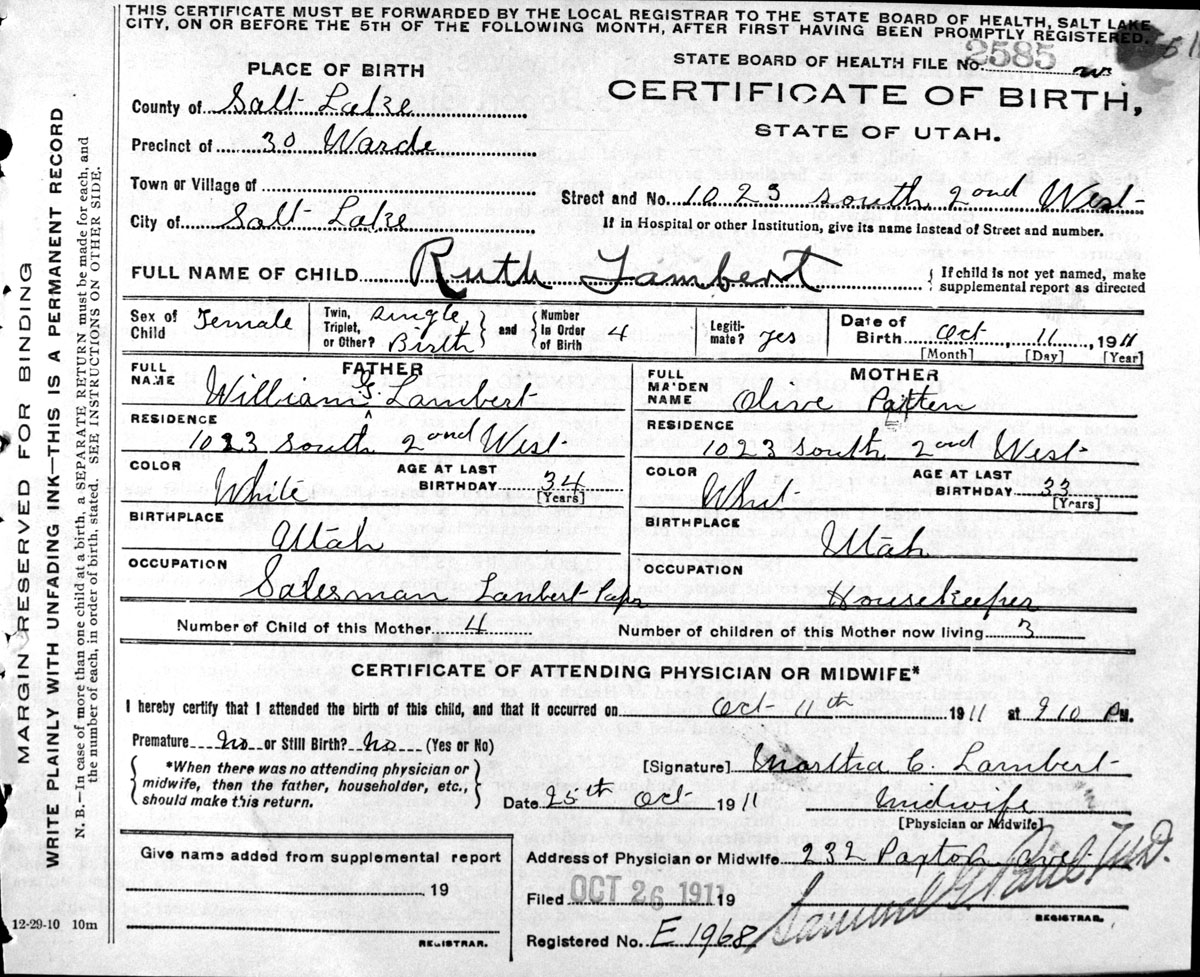 THIS CERTIFICATE MUST BE FORWARDED BY THE LOCAL REGISTRAR TO THE STATE BOARD OF HEALTH, SALT LAKE
CITY, ON OR BEFORE THE 5TH OF THE FOLLOWING MONTH, AFTER FIRST HAVING BEEN PROMPTLY REGISTERED.
STATE BOARD OF HEALTH FILE No. 2585
PLACE OF BIRTH
CERTIFICATE OF BIRTH,
STATE OF UTAH.
County of Salt Lake
Precinct of 30 Warde
Town or Village of
Street and No. 1023 South 2ond West
City of Salt Lake
If in Hospital or other Institution, give its name instead of Street and number.
FULL NAME OF CHILD Ruth Lambert
{ If child is not yet named, make
supplemental report as directed
Sex of Child Female
Twin, Triplet, or Other? Single Birth
and Number In Order of Birth 4
Legitimate? yes
Date of Birth Oct, 11, 1911
[Month] [Day] [Year]
FATHER
FULL NAME William G. Lambert
RESIDENCE 1023 South 2ond West
COLOR White
AGE AT LAST BIRTHDAY 34 [Years]
BIRTHPLACE Utah
OCCUPATION Salesman Lanbert Papr
MOTHER
FULL MAIDEN NAME Olive Patten
RESIDENCE 1023 South 2ond West
COLOR Whit
AGE AT LAST BIRTHDAY 33 [Years]
BIRTHPLACE Utah
OCCUPATION Housekeeper
Number of Child of this Mother 4
Number of children of this Mother now living 3
CERTIFICATE OF ATTENDING PHYSICIAN OR MIDWIFE*
I hereby certify that I attended the birth of this child, and that it occurred on Oct 11th 1911 at 9 10 PM.
Premature No or Still Birth? No (Yes or No)
{ *When there was no attending physician or
midwife, then the father, householder, etc.,
should make this return. }
[Signature] Martha C. Lambert
Date 25th Oct 1911
Midwife
[Physician or Midwife]
Give name added from supplemental report
19
REGISTRAR.
Address of Physician or Midwife 232 Paxton Ave
Filed OCT 26 1911 19
Samuel G. Paul M.D.
REGISTRAR.
Registered No. E 1968
12-29-10 10m
MARGIN RESERVED FOR BINDING
WRITE PLAINLY WITH UNFADING INK—THIS IS A PERMANENT RECORD
N. B.—In case of more than one child at a birth, a SEPARATE RETURN must be made for each, and
the number of each, in order of birth, stated. SEE INSTRUCTIONS ON OTHER SIDE.